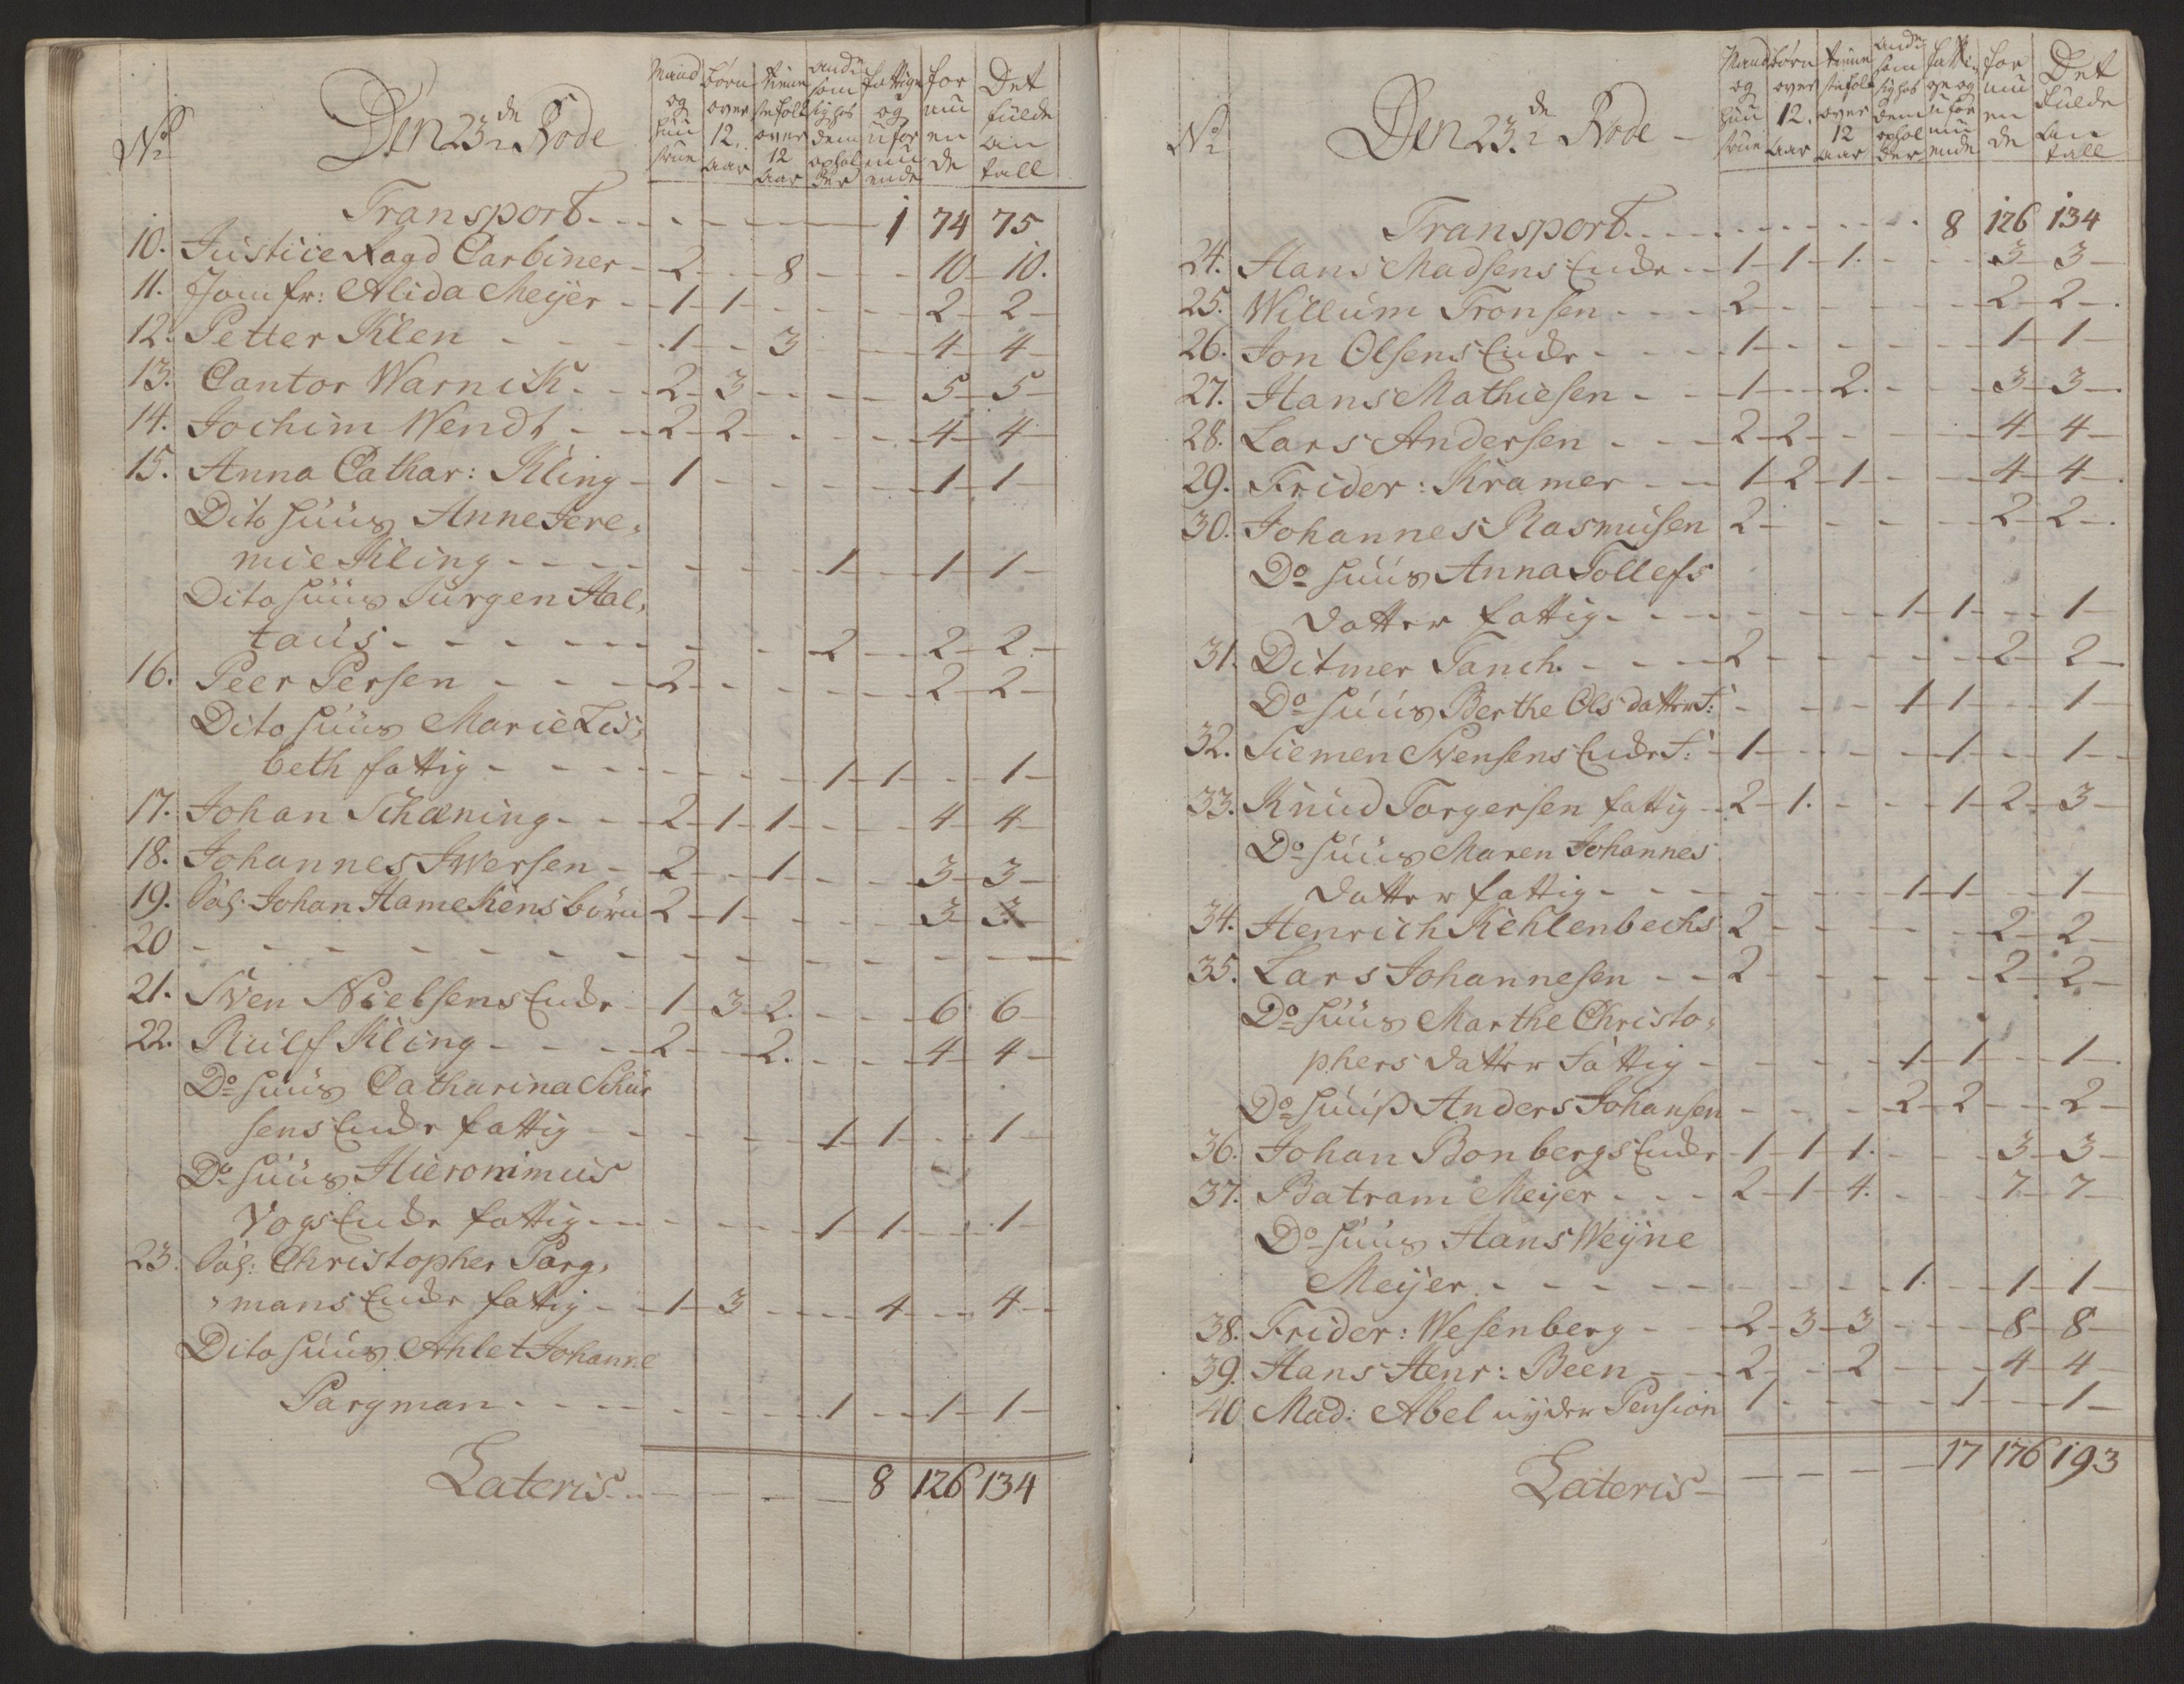 No
Den 23de Rode
Mand og Hustrue
børn over 12. aar
tiene stefolk over 12 aar
andre som sig hos dem opholder
fattige og ufor muende
for mu en de
Det fulde an tall
Transport - - - 1 74 75
10. Justice Raad Carbiner - 2 - - 8 - - - 10 - 10.
11. Jomfr: Alida Meÿer - 1 - 1 - - - - 2 - 2 -
12. Petter Klen - - - 1 - - 3 - - - 4 - 4 -
13. Cantor Warnik - - 2 - 3 - - - - 5 - 5 -
14. Jochim Wendt - - 2 - 2 - - - - 4 - 4 -
15. Anna Cathar: Kling - 1 - - - - - 1 - 1 -
Dito Huus Anne Jere,
mie Kling - - - - - - - 1 - - 1 - 1 -
Dito Huus Jurgen Hal,
taus - - - - - - - - 2 - - 2 - 2 -
16. Peer Persen - - - 2 - - - - - 2 - 2 -
Dito Huus Marie Lis,
beth fattig - - - - - - - 1 - 1 - - 1 -
17. Johan Schæning - - 2 - 1 - 1 - - - 4 - 4 -
18. Johannes Iwersen - 2 - - 1 - - - 3 - 3 -
19. Sal: Johan Hamekens børn 2 - 1 - - - - 3 - 3
20 - - - - - - - - - - - -
21. Sven Nielsens Enke - 1 - 3 - 2. - - - 6 6 -
22. Rulf Kling - - - 2 - - 2. - - - 4 - 4 -
Do Huus Catharina Schur
sens Enke fattig - - - - - 1 - 1 - - 1 -
Do Huus Hieronimus
Vogs Enke fattig - - - - - 1 - 1 - - 1 -
23. Sal: Christopher Parg,
mans Enke fattig - - 1 - 3 - - - 4 - - 4 -
Dito Huus Ahlet Johanne
Pargman - - - - - - - 1 - - 1 - 1 -
Lateris - - - - - 8 126 134
No
Den 23de Rode -
Mand og Hustrue
børn over 12. aar
tiene stefolk over 12 aar
andre som sig hos dem ophol der
fatti ge og ufor mu ende
for mu en de
Det fulde an tall
Transport - - - - 8 126 134
24. Hans Madsens Enke - - 1 - 1 - 1. - - - 3 - 3 -
25. Willum Tronsen - - - 2 - - - - - 2 - 2 -
26. Jon Olsens Enke - - - 1 - - - - - 1 - 1 -
27. Hans Mathiesen - - 1 - - 2. - - - 3 - 3 -
28. Lars Andersen - - - 2 - 2 - - - - 4 - 4 -
29. Frider: Kramer - - 1 - 2 - 1 - - - 4 - 4 -
30. Johannes Rasmusen 2 - - - - - 2 - 2 -
Do Huus Anna Tollefs
datter fattig - - - - - - 1 - 1 - - 1 -
31. Ditmer Tanch. - - - 2 - - - - - 2 - 2 -
Do Huus Berthe Ols datter f: - - - 1 - 1 - - 1 -
32. Siemen Svensens Enke f: - 1 - - - - 1 - - 1 -
33. Knud Torgersen fattig - 2 - 1. - - - 1 - 2 - 3 -
Do Huus Maren Johannes
datter fattig - - - - - - 1 - 1 - - 1 -
34. Henrich Kehlenbechs 2 - - - - - 2 - 2 -
35. Lars Johannesen - - 2 - - - - - 2 - 2 -
Do Huus Marthe Christo,
phers datter Fattig - - - - 1 - 1 - - 1 -
Do Huuß Anders Johansen - - - 2 - 2 - - 2 -
36. Johan Bonbergs Enke - 1 - 1 - 1. - - - 3 - 3 -
37. Batram Meÿer - - - 2 - 1 - 4. - - - 7 - 7
Do Huus Hans Weÿne
Meÿer - - - - - - - 1. - - 1 - 1 -
38. Frider: Wesenberg - - 2 - 3 - 3 - - - 8 - 8 -
39. Hans Henr: Been - - 2 - - 2 - - - 4 - 4 -
40 Mad: Abel nÿder Pension 1 - - - - 1 - - 1 -
Lateris - - - - - 17 176 193